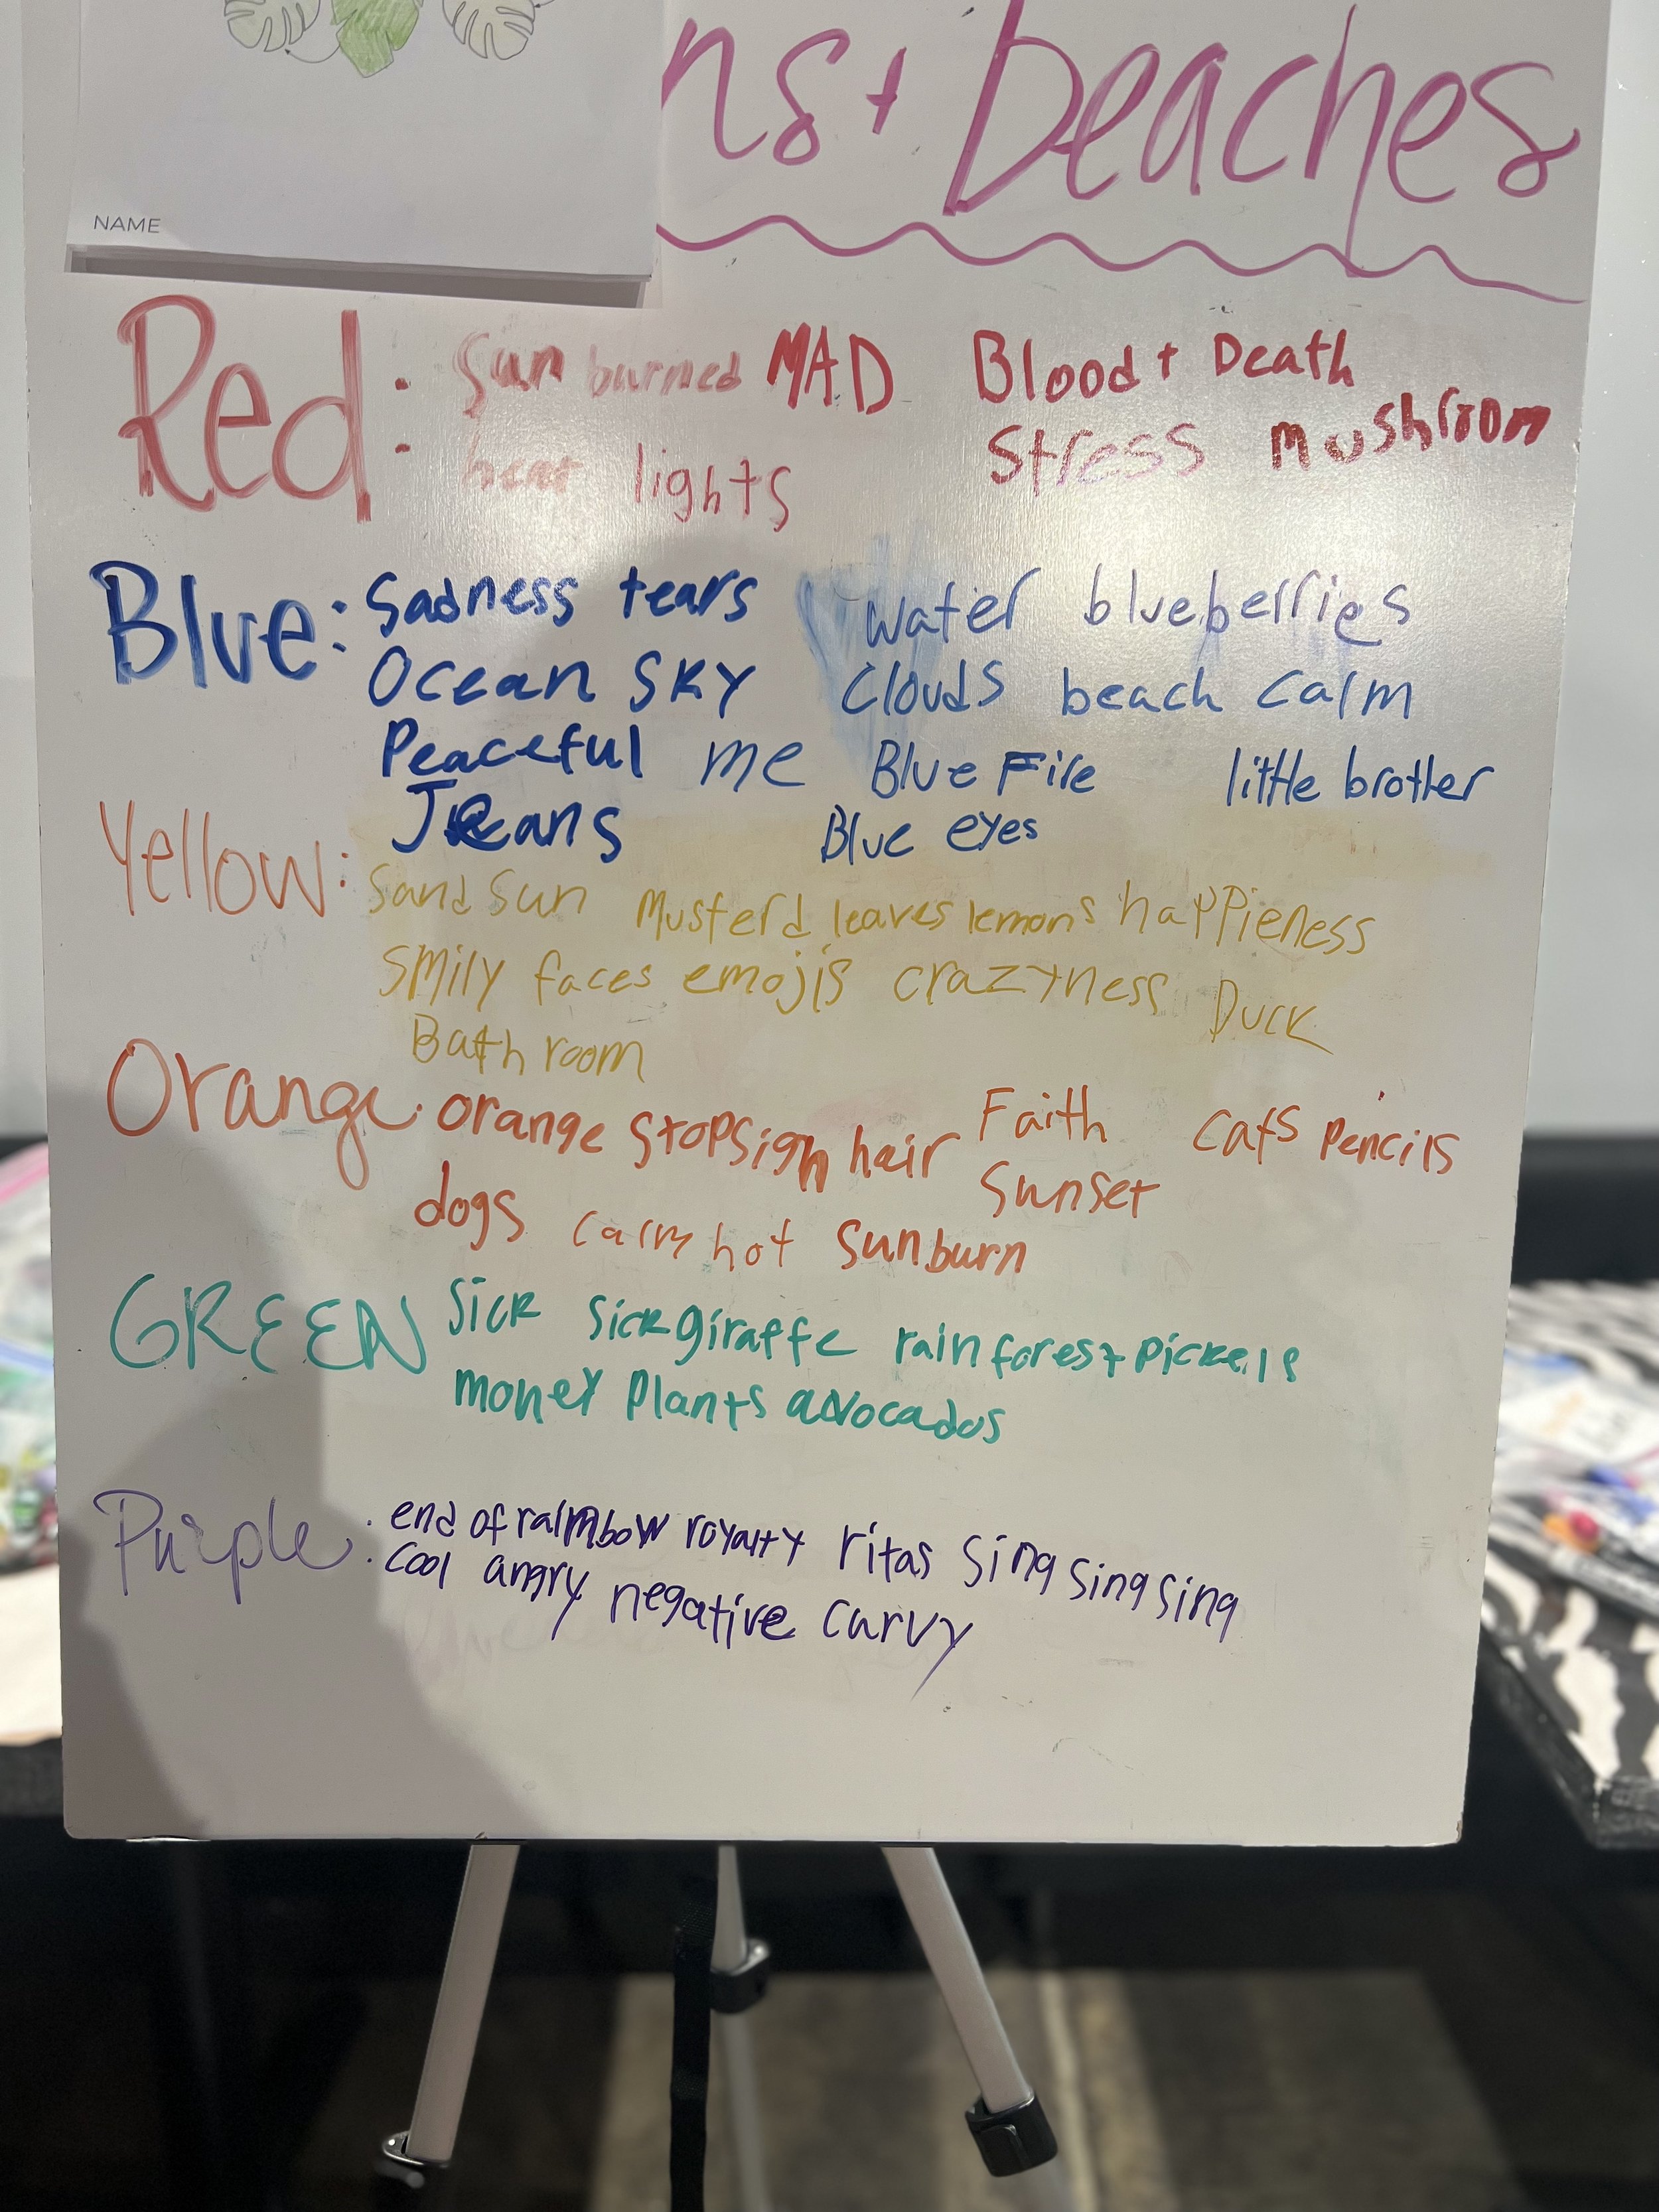 ns + beaches
NAME
Red: Sun burned MAD Blood + Death
heat lights Stress mushroom
Blue: Sadness tears water blueberries
Ocean SKY Clouds beach calm
Peaceful me Blue Fire little brother
Jeans Blue eyes
Yellow: Sand Sun Musterd leaves lemons happieness
Smily faces emojis crazyness Duck
Bathroom
Orange: orange stopsign hair Faith cats pencils
dogs calm hot sunburn Sunset
GREEN Sick Sick giraffe rainforest pickels
money Plants avocados
Purple: end of rainbow royalty ritas Sing sing sing
cool angry negative curvy